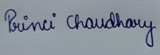 Princi Choudhary